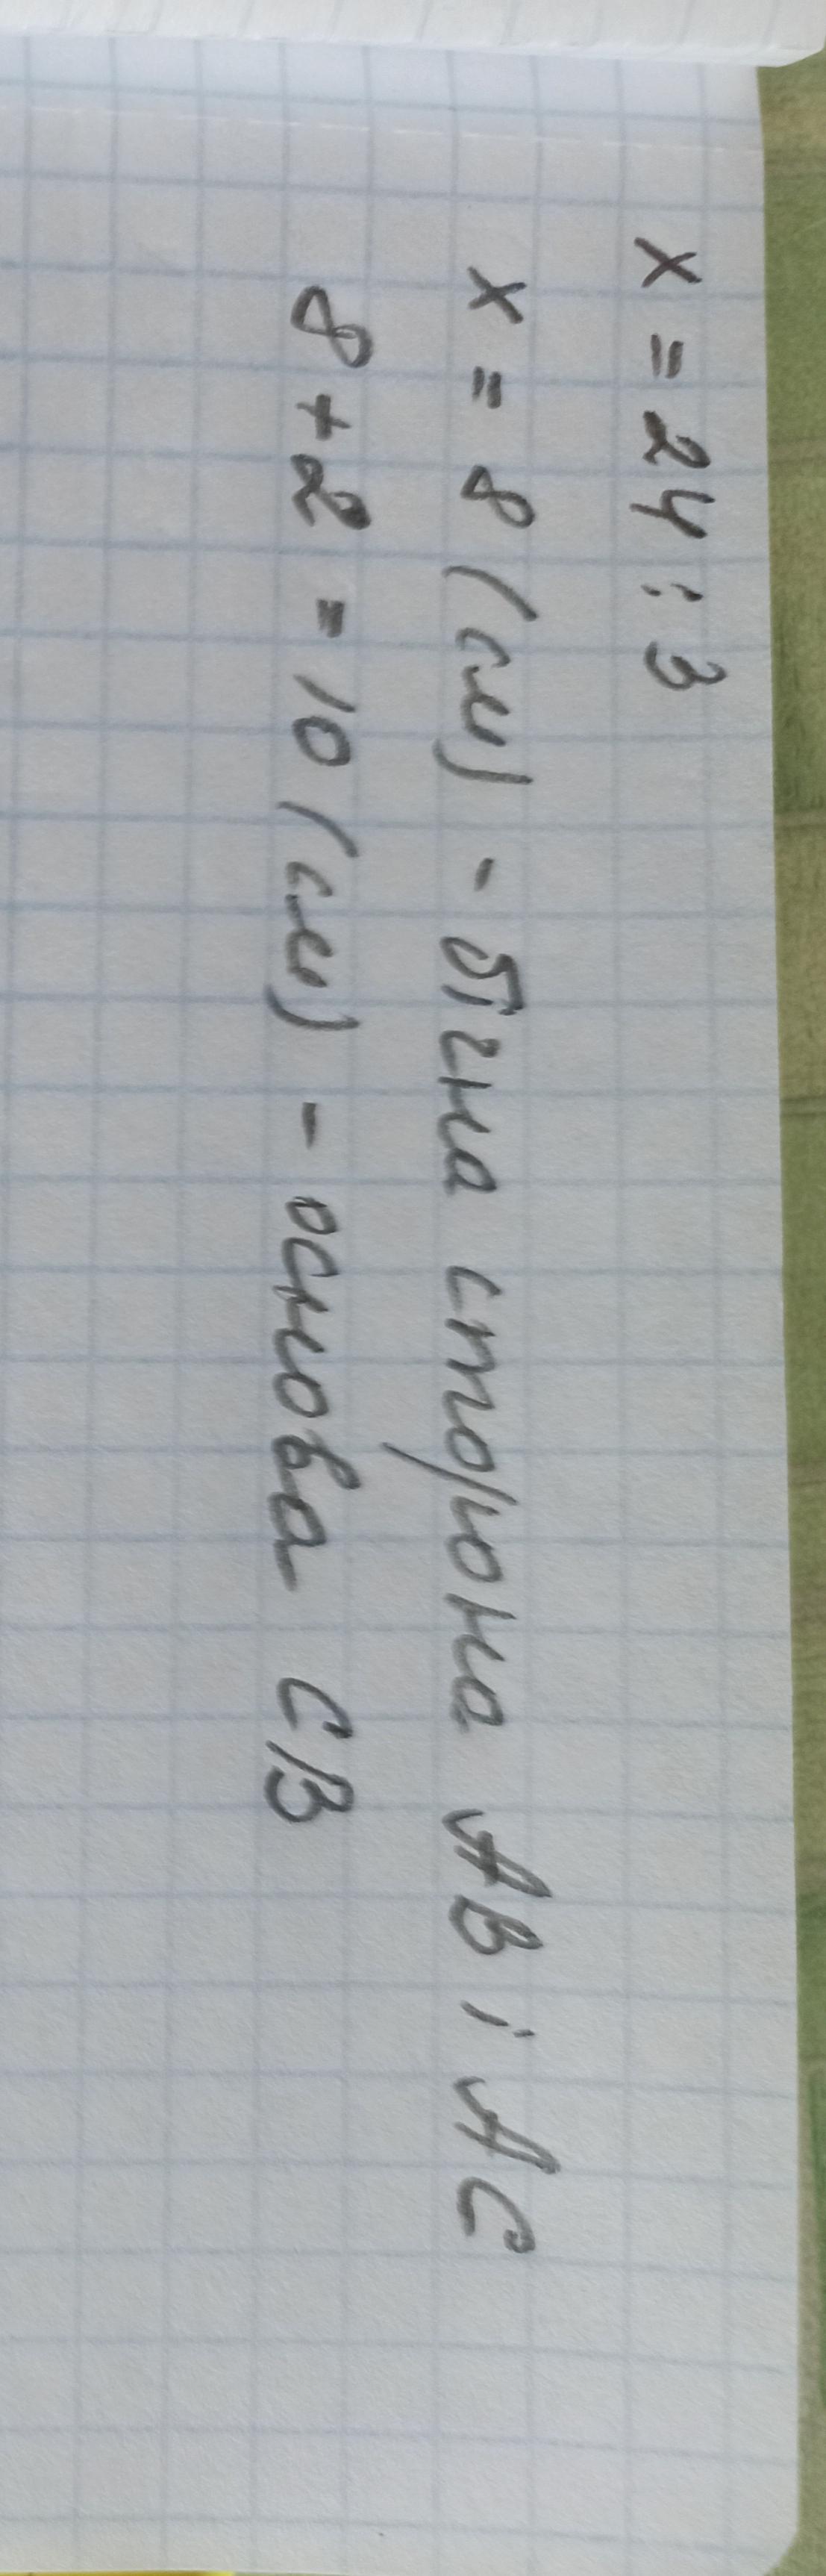 x = 24 : 3
x = 8 (см) - бічна сторона AB і AC
8 + 2 = 10 (см) - основа CB